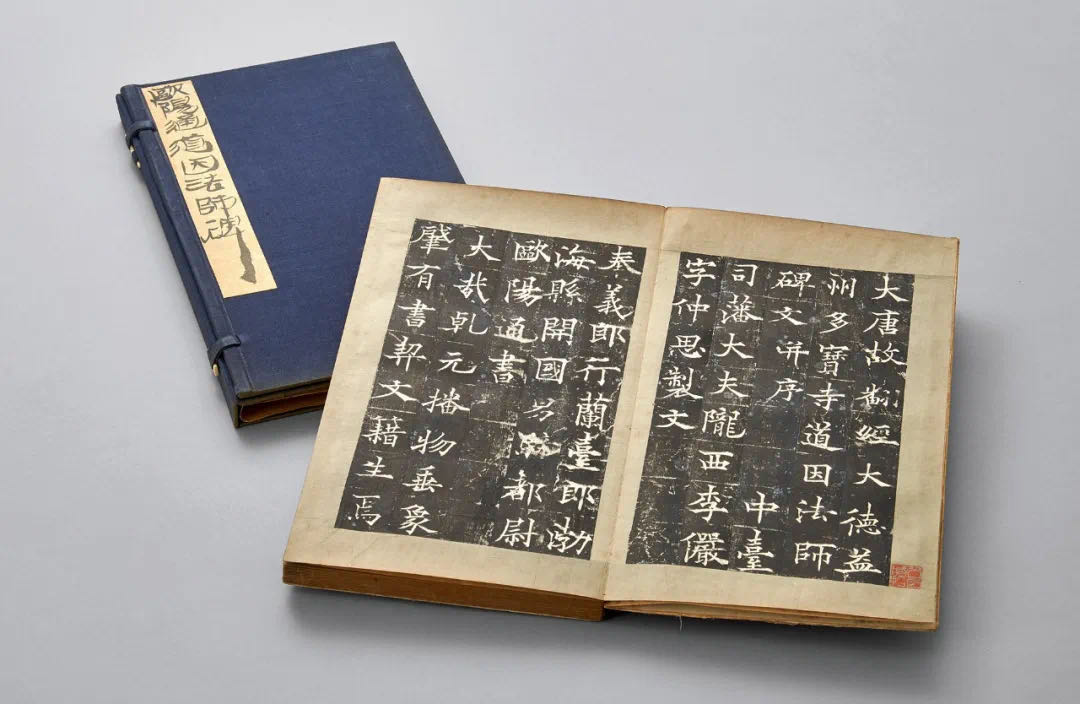 歐陽通道因法師碑
大唐故翻經大德益
州多寶寺道因法師
碑文并序 中臺
司藩大夫隴西李儼
字仲思製文
奉義郎行蘭臺郎渤
海縣開國都尉
歐陽通書
大哉乹元播物垂象
肇有書契文藉生焉